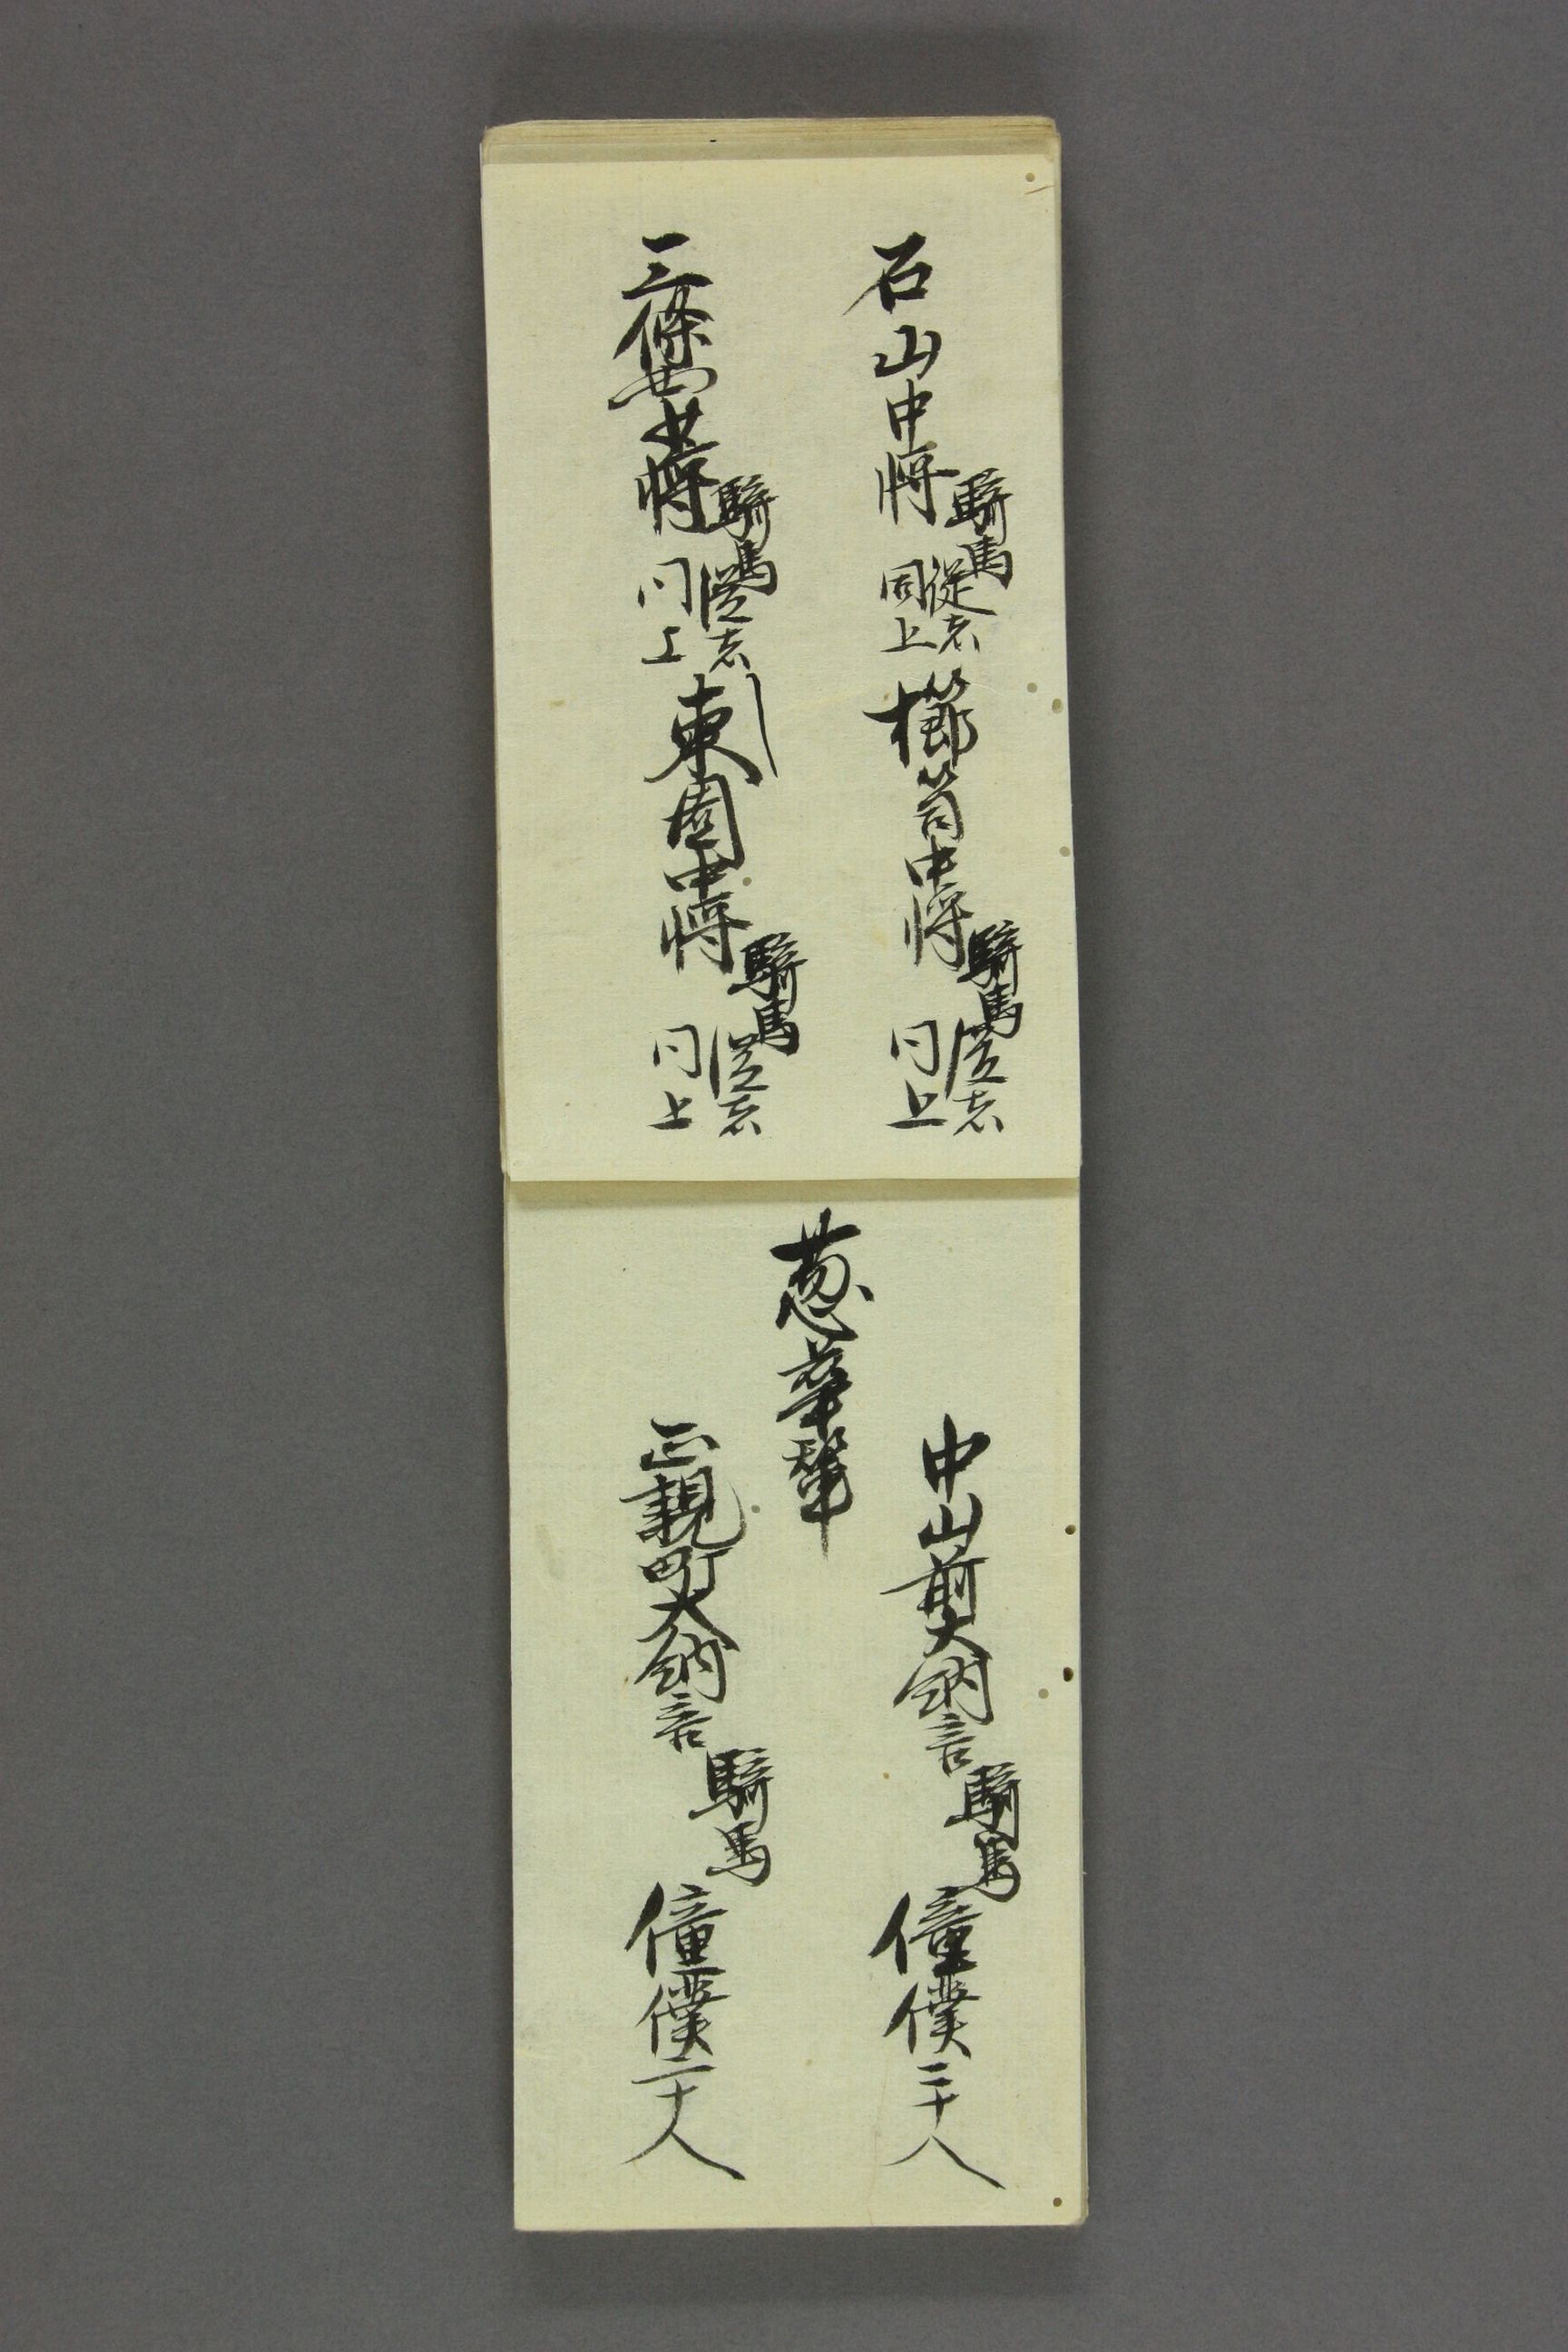 石山中将 騎馬 従者同上 櫛笥中将 騎馬 従者同上
三條西少将 騎馬 従者同上 東園中将 騎馬 従者同上
中山前大納言 騎馬 僮僕二十人
葱華輦
正親町大納言 騎馬 僮僕二十人